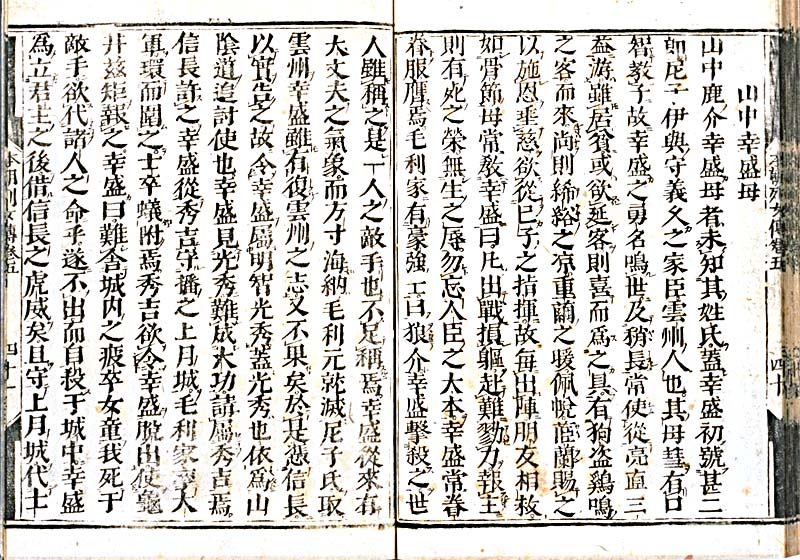 山中幸盛母
山中鹿介幸盛母者未知其姓氏蓋幸盛初號甚二
郎尼子伊與守義久之家臣雲州人也其母彗有口
智教子故幸盛之勇名鳴世及稍長常使從亮直三
益游雖居貧或欲延客則喜而爲之具有狗盗鷄鳴
之客而來尚則絺綌之凉重繭之暖佩帨茝蘭賜之
以施恩垂慈欲從已子之指揮故毎出陣朋友相救
如骨節母常教幸盛曰凡出戰損軀赴難勠力報主
則有死之榮無生之辱勿忘人臣之大本幸盛常眷
眷服膺焉毛利家有豪強士曰狼介幸盛擊殺之世
人雖稱之是一人之敵手也不足稱焉幸盛從來有
大丈夫之氣象而方寸海納毛利元就滅尼子氏取
雲州幸盛雖有復雲州之志又不果矣於是憑信長
以實告之故令幸盛屬明智光秀蓋光秀也依爲山
陰道追討使也幸盛見光秀難成大功請屬秀吉焉
信長許之幸盛從秀吉守播之上月城毛利家率大
軍環而圍之士卒蟻附焉秀吉欲令幸盛脱出使龜
井茲矩報之幸盛曰難舍城内之疲卒女童我死于
敵手欲代諸人之命乎遂不出而自投于城中幸盛
爲立君主之後借信長之虎威矣且守上月城代士
本朝列女傳卷五
四十
本朝列女傳卷五
四十一